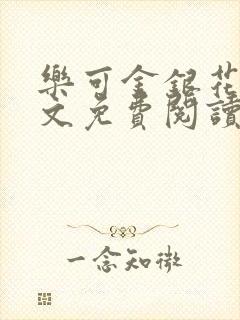 樂可金銀花
文免費閱讀
一念知微